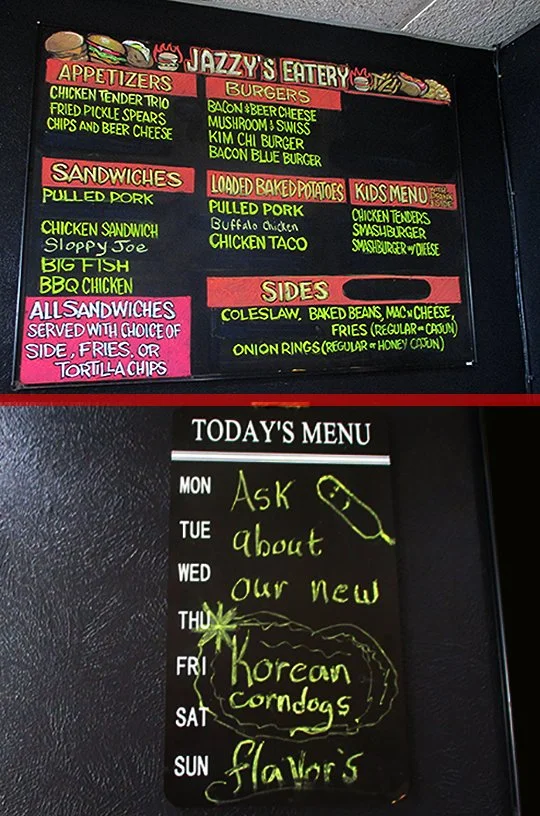 JAZZY'S EATERY
APPETIZERS
CHICKEN TENDER TRIO
FRIED PICKLE SPEARS
CHIPS AND BEER CHEESE
BURGERS
BACON & BEER CHEESE
MUSHROOM & SWISS
KIM CHI BURGER
BACON BLUE BURGER
SANDWICHES
PULLED PORK
CHICKEN SANDWICH
Sloppy Joe
BIG FISH
BBQ CHICKEN
ALL SANDWICHES
SERVED WITH CHOICE OF
SIDE, FRIES, OR
TORTILLA CHIPS
LOADED BAKED POTATOES
PULLED PORK
Buffalo Chicken
CHICKEN TACO
KIDS MENU
CHICKEN TENDERS
SMASHBURGER
SMASHBURGER W/CHEESE
SIDES
COLESLAW, BAKED BEANS, MAC N CHEESE,
FRIES (REGULAR OR CAJUN)
ONION RINGS (REGULAR OR HONEY CAJUN)
TODAY'S MENU
MON Ask
TUE about
WED our new
THU
FRI Korean
SAT corndogs
SUN flavor's